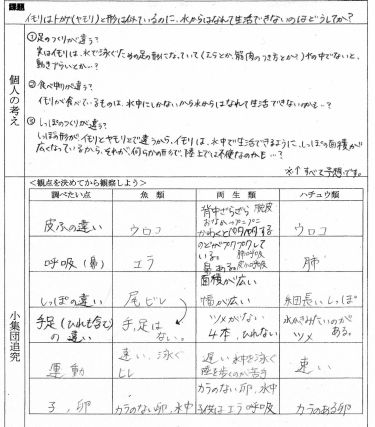 課題
イモリはトカゲ(ヤモリ)と形は似ているのに、水からはなれて生活できないのはどうしてか?
個人の考え
①足のつくりが違う?
実はイモリは、水で泳ぐための足の形になっていて(エラとか、筋肉のつき方とか?)水の中でないと、
動きづらいとか…?
②食べ物が違う?
イモリが食べているものは、水中にしかないから水からはなれて生活できないのかも…?
③しっぽのつくりが違う?
しっぽの形が、イモリとヤモリとで違うから、イモリは、水中で生活できるように、しっぽの面積が
広くなっているから、それが何らかの形で、陸上では不便なのかも…?
※↑すべて予想です。
小集団追究
<観点を決めてから観察しよう>
調べたい点 魚類 両生類 ハチュウ類
皮ふの違い ウロコ
背中ざらざら 脱皮
おなかプニプニ
かわくとペタペタする
ウロコ
呼吸(鼻) エラ
のどがプクプクして
いる。肺呼吸
鼻ある。皮ふ呼吸
肺
しっぽの違い 尾ビレ
面積が広い
幅が広い
細長いしっぽ
手足(ひれも含む)
の違い
手、足は
ない。
ツメがない
4本、ひれない
水かきみたいのが
ある。
ツメ
運動
速い、泳ぐ
ヒレ
遅い 水中を泳ぐ
陸を歩くのが苦手
速い
子、卵 カラのない卵、水中
カラのない卵、水中
子供はエラ呼吸
カラのある卵